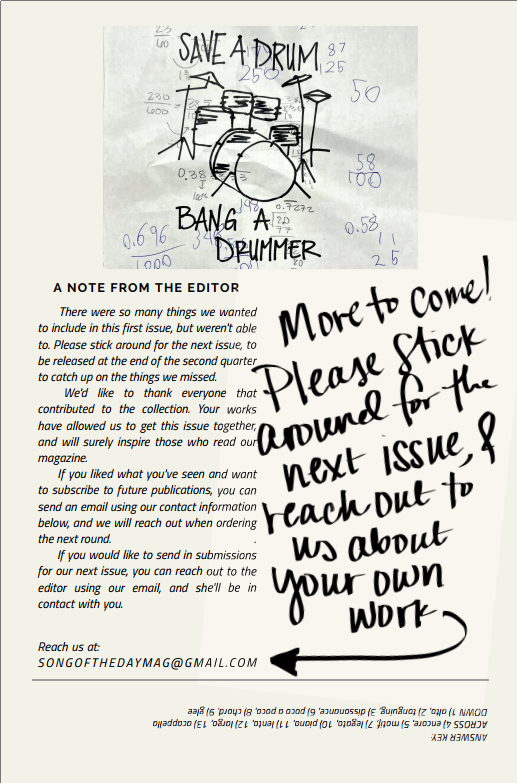 SAVE A DRUM
87
125
250
50
230
600
58
100
0.38
0.7272
0.58
11
25
BANG A
DRUMMER
0.696
1000
A NOTE FROM THE EDITOR
There were so many things we wanted
to include in this first issue, but weren't able
to. Please stick around for the next issue, to
be released at the end of the second quarter
to catch up on the things we missed.
We'd like to thank everyone that
contributed to the collection. Your works
have allowed us to get this issue together,
and will surely inspire those who read our
magazine.
If you liked what you've seen and want
to subscribe to future publications, you can
send an email using our contact information
below, and we will reach out when ordering
the next round.
If you would like to send in submissions
for our next issue, you can reach out to the
editor using our email, and she'll be in
contact with you.
More to come!
Please stick
around for the
next issue, &
reach out to
us about
your own
work
Reach us at:
SONGOFTHEDAYMAG@GMAIL.COM
ANSWER KEY:
ACROSS 4) encore, 5) motif, 7) legato, 10) piano, 11) lento, 12) largo, 13) acappella
DOWN 1) alto, 2) tonguing, 3) dissonance, 6) poco a poco, 8) chord, 9) glee